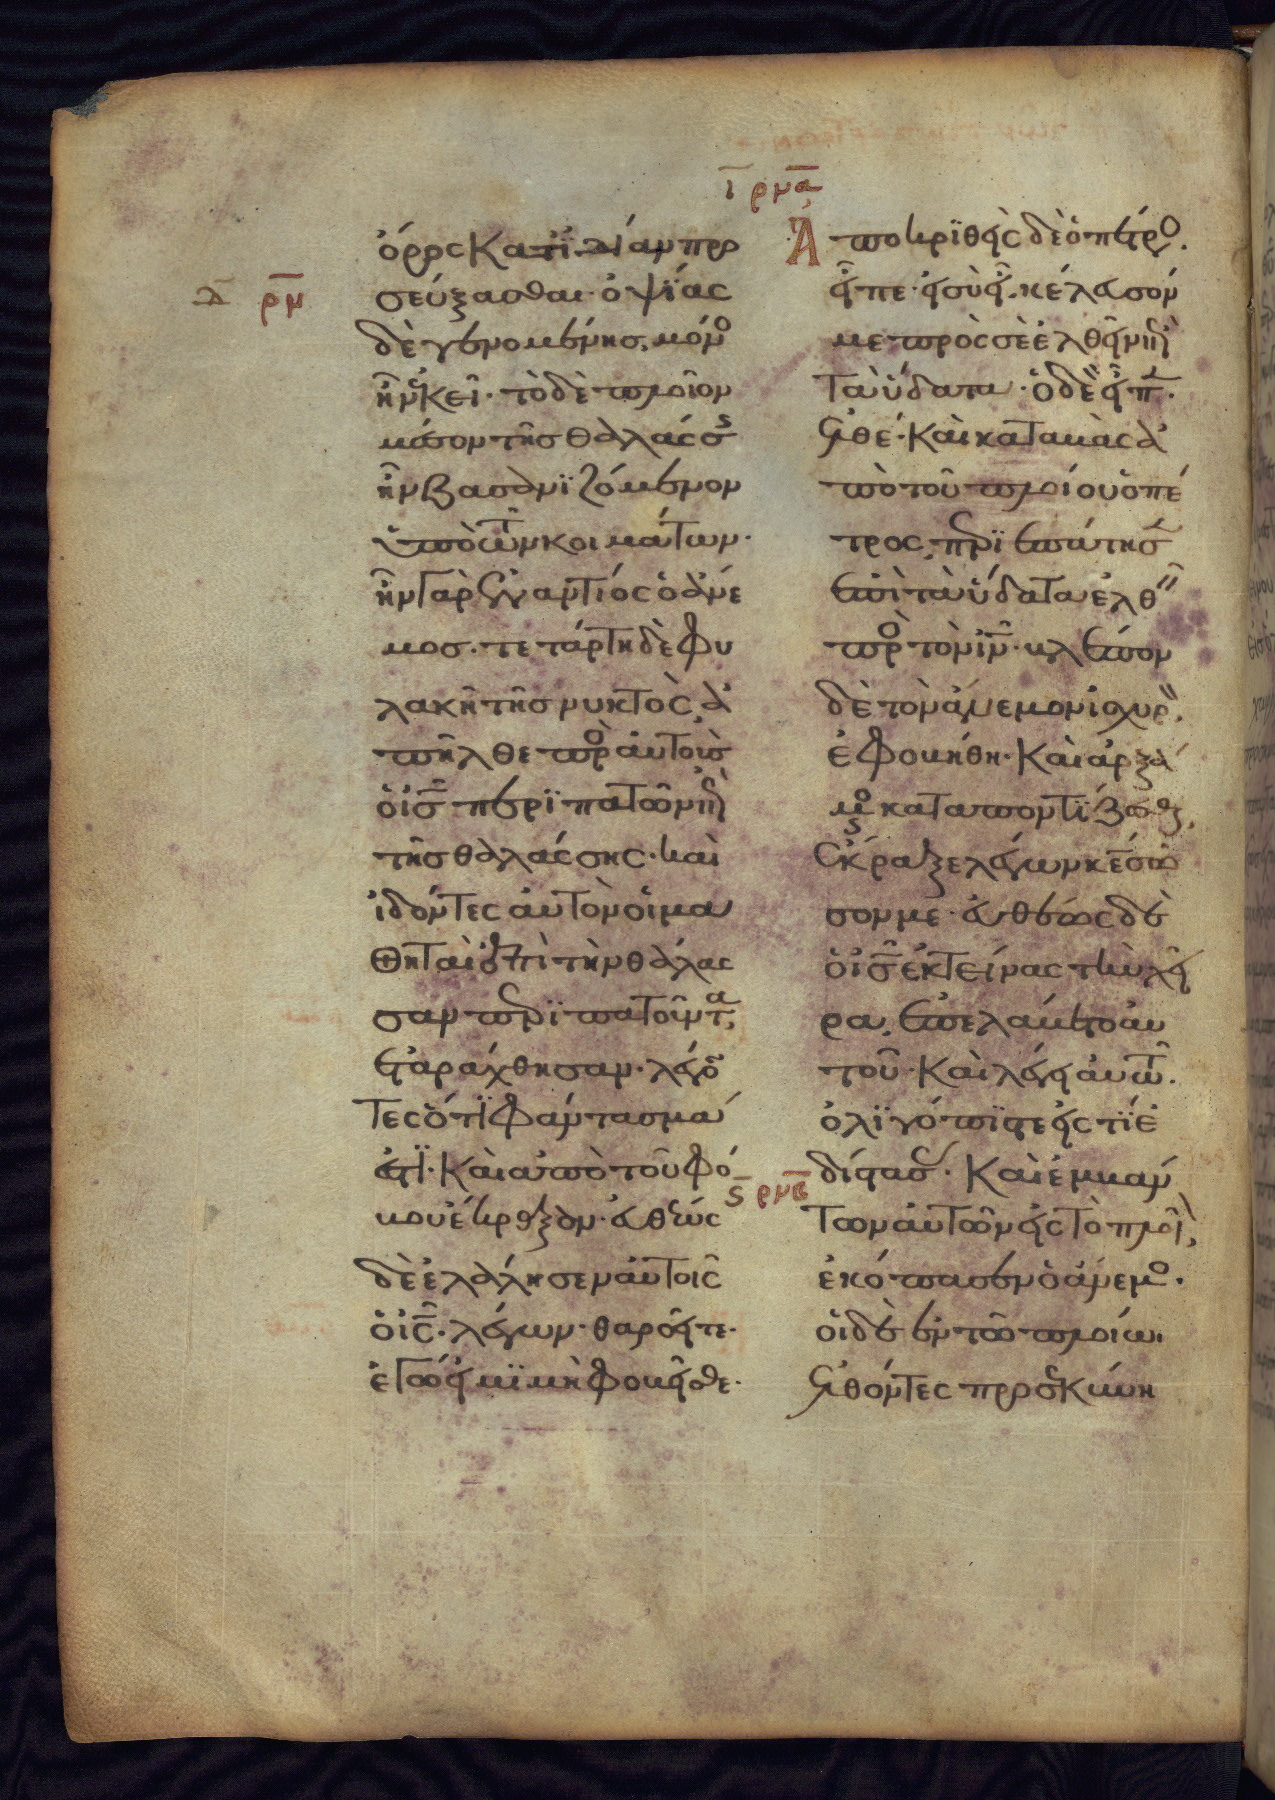 ὄρος κατ ἰδίαν προ
σεύξασθαι· ὀψίας
δὲ γενομένης, μόνο
ἦν ἐκεῖ· τὸ δὲ πλοῖον
μέσον τῆς θαλάσσ
ἦν βασανϊζόμενον
ὑπὸ τῶν κυμάτων·
ἦν γὰρ ἐναντίος ὁ ἄνε
μος· τετάρτη δὲ φυ
λακῆ τῆς νυκτὸς, ἀ
πῆλθε πρὸ αὐτοὺς
ὁ ις περϊπατῶν ἐπὶ
τῆς θαλάσσης· καὶ
ἰδόντες αὐτὸν οἱ μα
θηταὶ ἐπὶ τὴν θάλας
σαν περϊπατοῦντα,
ἐταράχθησαν· λέγο
τες ὅτϊ φάντασμά
ἐστϊ· καὶ ἀπὸ τοῦ φό
βου ἔκραξαν· εὐθέως
δὲ ἐλάλησεν αὐτοῖς
ὁ ις· λέγων· θαρσεῖτε·
ἐγώ εἰμϊ μὴ φοβεῖσθε·
δ ρμ
ι ρμα
Ἀποκρϊθεὶς δὲ ὁ πέτρο.
εἶπε· εἰ σὺ εἶ, κέλευσόν
με πρὸς σὲ ἐλθεῖν ἐπὶ
τὰ ὕδατα· ὁ δὲ εἶπ.
ἐλθέ· καὶ καταβὰς ἀ
πὸ τοῦ πλοίου ὁ πέ
τρος, περϊεπάτησ
ἐπὶ τὰ ὕδατα ἐλθ
πρὸ τὸν ιν· βλέπον
δὲ τὸν ἄνεμον ἰσχυρ,
ἐφοβήθη· καὶ ἀρξά
μο καταποντϊζεσθ,
ἔκραξε λέγων κε σῶ
σον με· εὐθέως δὲ
ὁ ις ἐκτείνας τὴν χεῖ
ρα, ἐπελάβετο αὐ
τοῦ· καὶ λέγει αὐτῶ.
ὀλϊγόπϊστε εἰς τϊ ἐ
δίστασ· καὶ ἐμβάν
των αὐτῶν εἰς τὸ πλοῖ,
ἐκόπασεν ὁ ἄνεμο.
οἱ δὲ ἐν τῶ πλοίω,
ἐλθόντες προσεκύνη
ς ρμβ